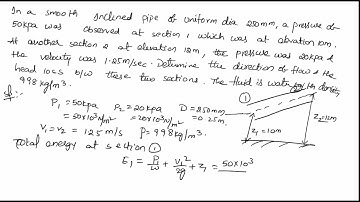 In a smooth inclined pipe of uniform dia 250mm, a pressure of
50kpa was observed at section 1 which was at elevation 10m.
At another section 2 at elevation 12m, the pressure was 20kpa &
the velocity was 1.25m/sec. Determine the direction of flow & the
head loss b/w these two sections. The fluid is water
998kg/m³.
Sol:-
P₁ = 50kpa P₂ = 20kpa D = 250mm
= 50x10³ n/m² = 20x10³ n/m² = 0.25m.
V₁ = V₂ = 1.25 m/s ρ = 998kg/m³
①
②
Z₁ = 10m
Z₂ = 12m
Total energy at section ①
E₁ = P₁/w + V₁²/2g + Z₁ = 50x10³